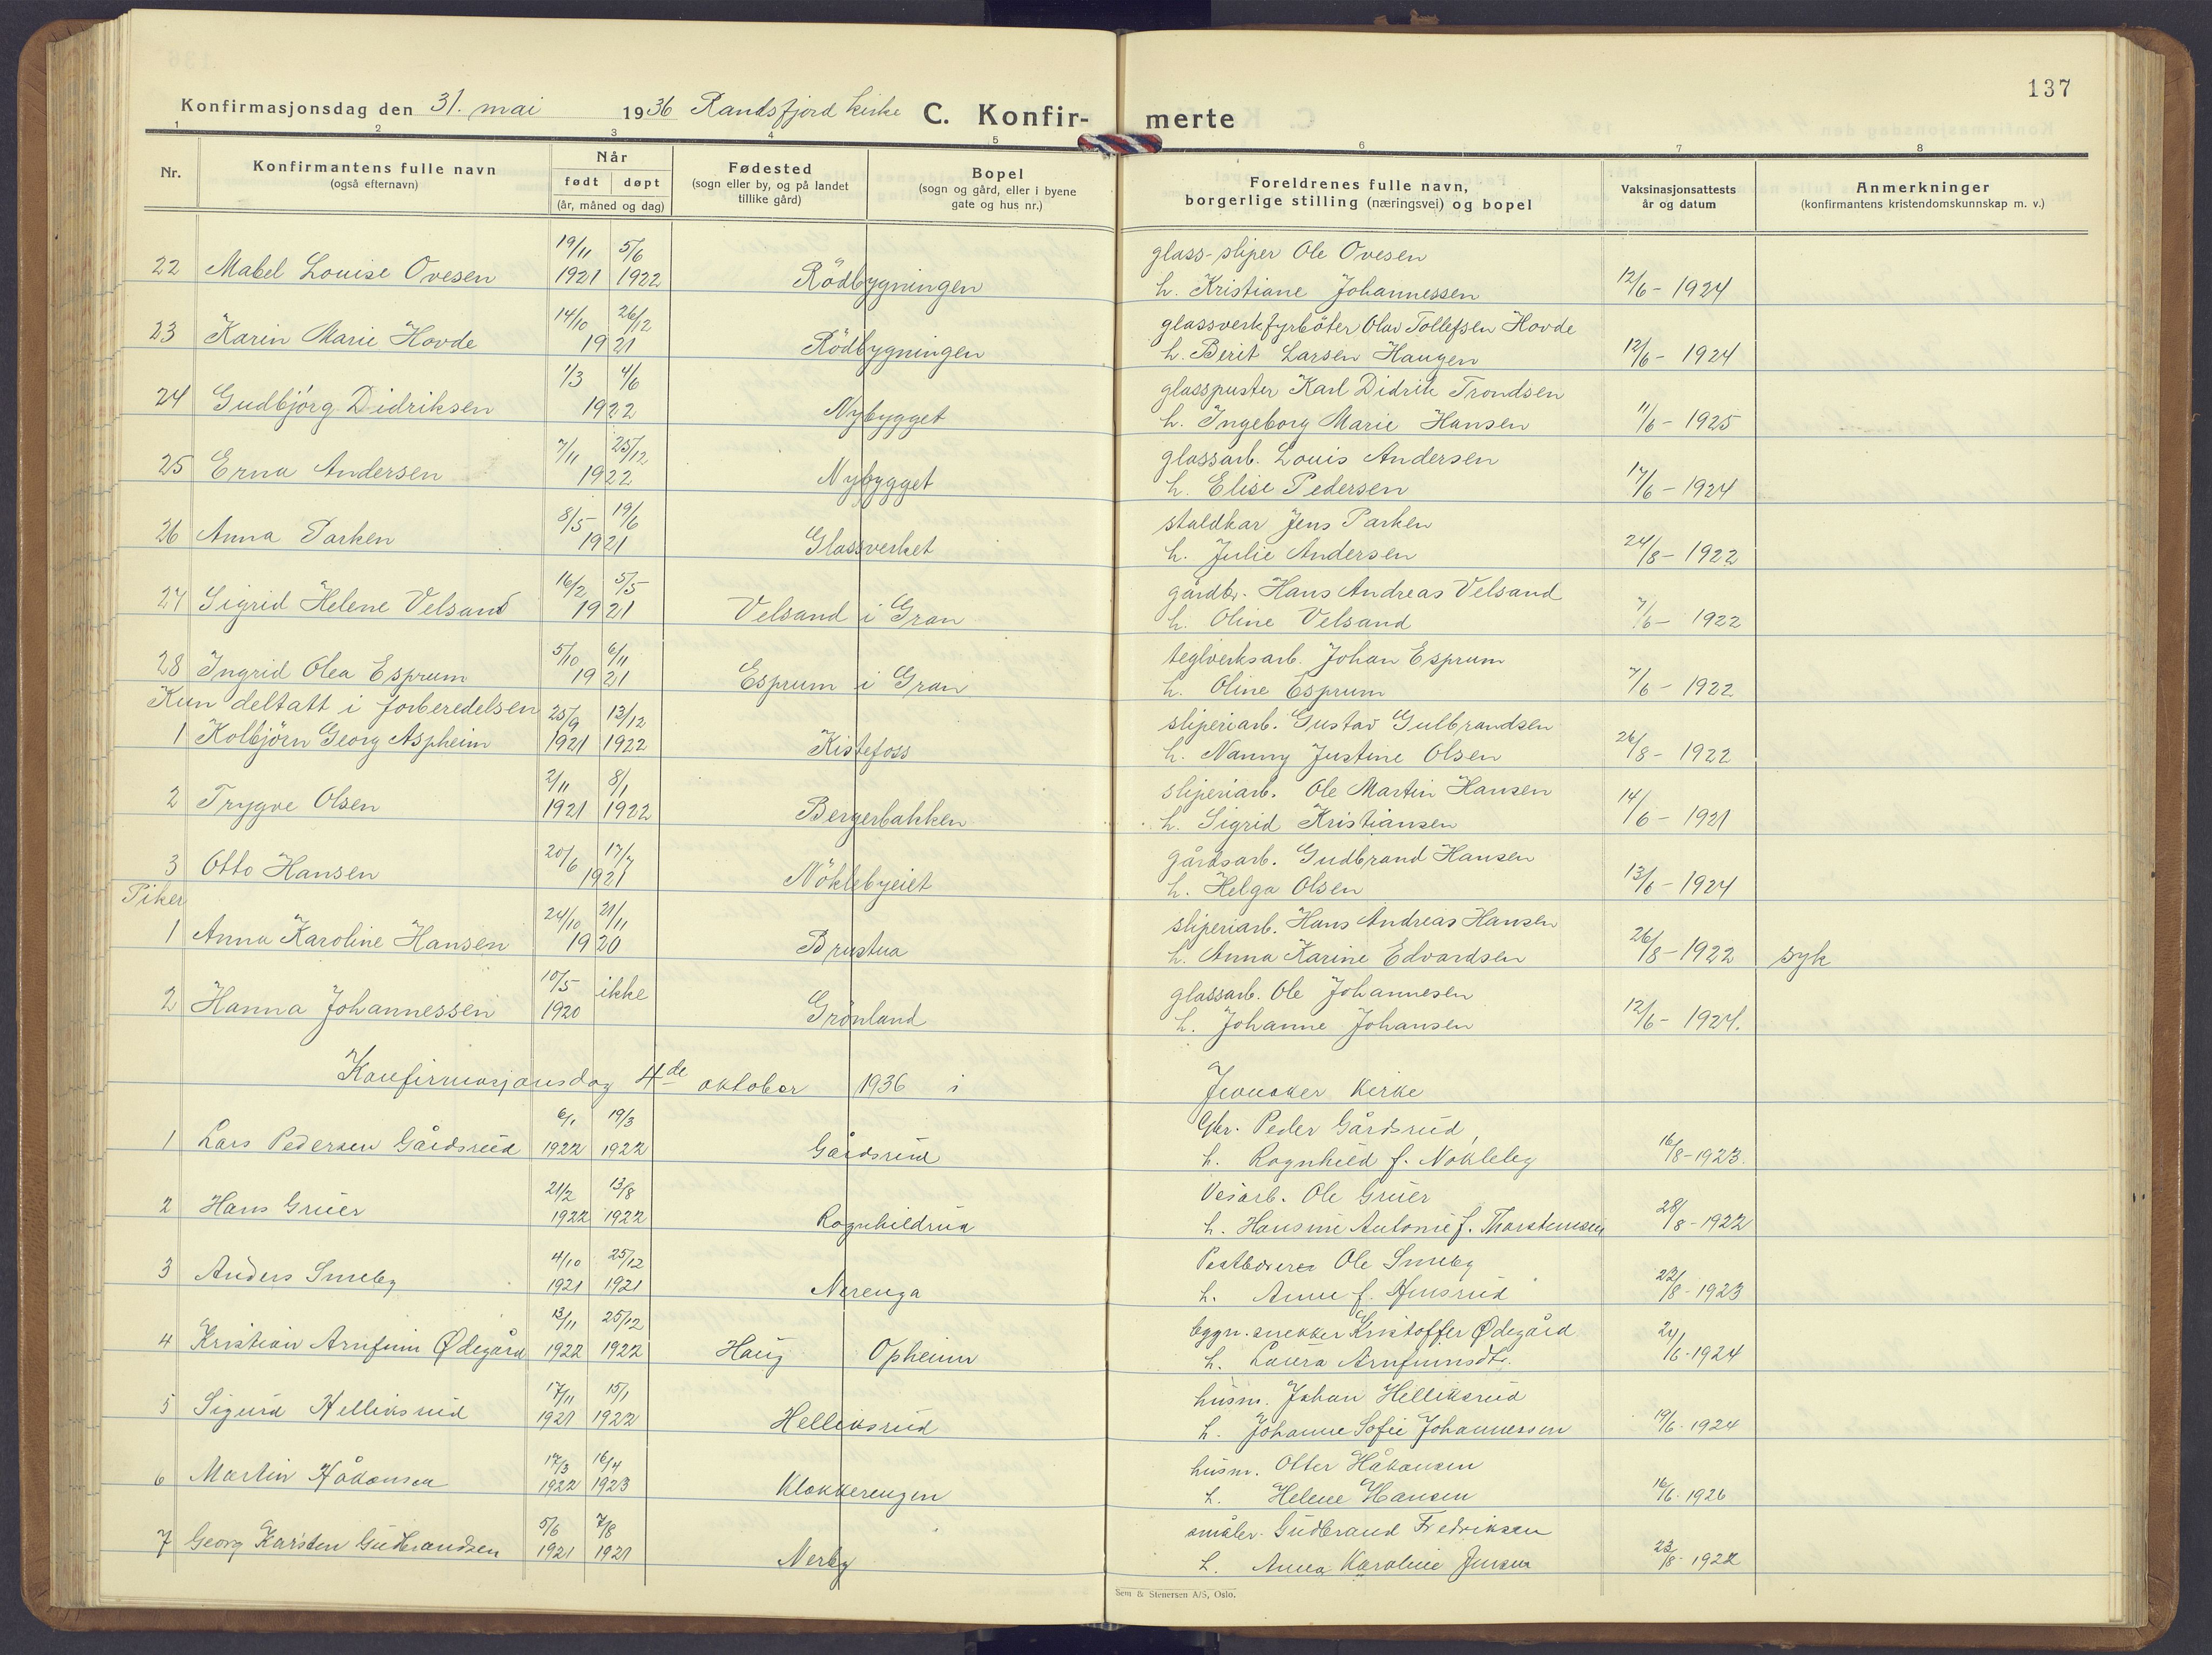 137
Konfirmasjonsdag den 31. mai 1936 Randsfjord kirke C. Konfir- merte
1 2 3 4 5 6 7 8
Nr.
Konfirmantens fulle navn
(også efternavn)
Når
født døpt
(år, måned og dag)
Fødested
(sogn eller by, og på landet
tillike gård)
Bopel
(sogn og gård, eller i byene
gate og hus nr.)
Foreldrenes fulle navn,
borgerlige stilling (næringsvei) og bopel
Vaksinasjonsattests
år og datum
Anmerkninger
(konfirmantens kristendomskunnskap m. v.)
19/11 5/6 glass-sliper Ole Ovesen
22 Mabel Louise Ovesen 1921 1922 Rödbygningen h. Kristiane Johannessen 12/6 - 1924
14/10 26/12 glassverkfyrböter Olav Tollefsen Hovde
23 Karin Marie Hovde 1921 Rödbygningen h. Berit Larsen Haugen 12/6 - 1924
1/3 4/6 glasspuster Karl Didrik Trondsen
24 Gudbjörg Didriksen 1922 Nybygget h. Ingeborg Marie Hansen 11/6 - 1925
7/11 25/12 glassarb. Louis Andersen
25 Erna Andersen 1922 Nybygget h. Elise Pedersen 17/6 - 1924
8/5 19/6 staldkar Jens Parken
26 Anna Parken 1921 Glassverket h. Julie Andersen 24/8 - 1922
16/2 5/5 gårdbr. Hans Andreas Velsand
27 Sigrid Helene Velsand 1921 Velsand i Gran h. Oline Velsand 7/6 - 1922
5/10 6/11 teglverksarb. Johan Esprum
28 Ingrid Olea Esprum 1921 Esprum i Gran h. Oline Esprum 7/6 - 1922
Kun deltatt i forberedelsen 25/9 13/12 sliperiarb. Gustav Gulbrandsen
1 Kolbjörn Georg Aspheim 1921 1922 Kistefoss h. Nanny Justine Olsen 26/8 - 1922
2/11 8/1 sliperiarb. Ole Martin Hansen
2 Trygve Olsen 1921 1922 Bergerbakken h. Sigrid Kristiansen 14/6 - 1921
20/6 17/7 gårdsarb. Gudbrand Hansen
3 Otto Hansen 1921 Nöklebyeiet h. Helga Olsen 13/6 - 1924
Piker
24/10 21/11 sliperiarb. Hans Andreas Hansen
1 Anna Karoline Hansen 1920 Brustua h. Anna Karine Edvardsen 26/8 - 1922 syk
10/5 ikke glassarb. Ole Johannesen
2 Hanna Johannessen 1920 Grönland h. Johanne Johansen 12/6 - 1924.
Konfirmasjonsdag 4de oktober 1936 i Jevnaker kirke
6/1 19/3 Gbr. Peder Gårdsrud,
1 Lars Pedersen Gårdsrud 1922 1922 Gårdsrud h. Ragnhild f. Nökleby 16/8-1923.
21/2 13/8 Veiarb. Ole Gruer
2 Hans Gruer 1922 1922 Ragnhildrua h. Hansine Antonie f. Thorstensen 28/8-1922
4/10 25/12 Postbærer Ole Smeby
3 Anders Smeby 1921 1921 Nerenga h. Anne f. 23/8-1923
13/11 25/12 bygn. snekker Kristoffer Ødegård
4 Kristian Arnfinn Ødegård 1922 1922 Haug Opheim h. Laura Arnfinnsdtr. 24/6-1924
17/11 15/1 husm. Johan Helliksrud
5 Sigurd Helliksrud 1921 1922 Helliksrud h. Johanne Sofie Johannessen 19/6-1924
17/3 16/4 husm. Otter Håkansen
6 Martin Håkansen 1922 1923 Klokkerengen h. Helene Hansen 16/6-1926
5/6 7/8 småbr. Gudbrand Fredriksen
7 Georg Karsten Gudbrandsen 1921 1921 Nerby h. Anna Karoline Jensen 23/8-1922
Sem & Stenersen A/S, Oslo.